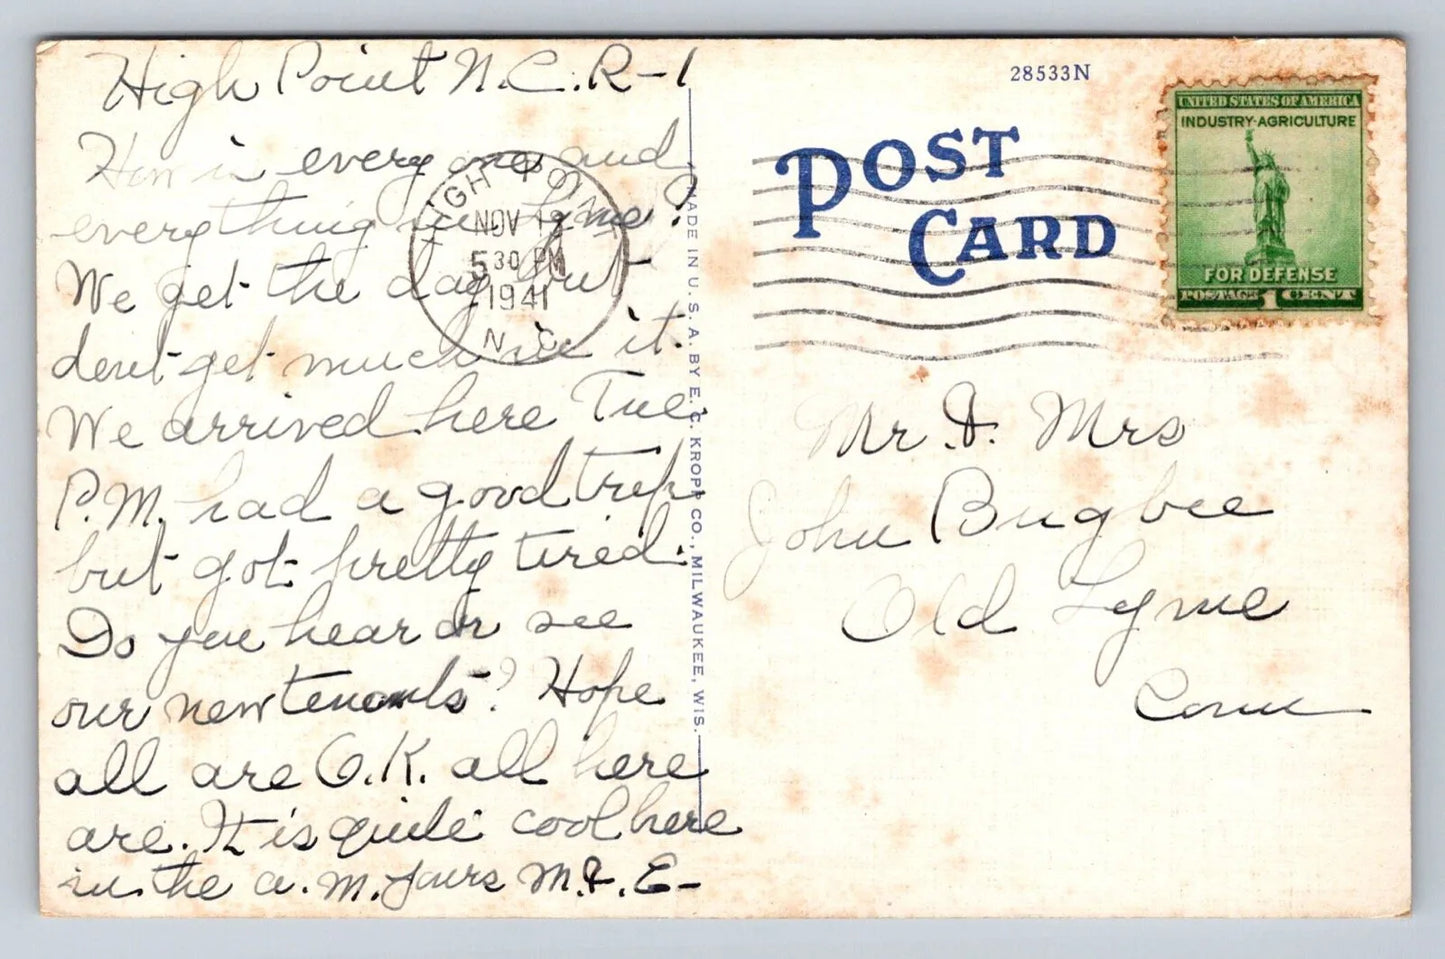 High Point N.C. R-1
is every one and
everything in Lyme?
We get the day but
dont get much in it.
We arrived here Tue.
P.M. had a good trip
but got pretty tired.
Do you hear or see
our new tenants? Hope
all are O.K. all here
are. It is quite cool here
in the a.m. Yours M. & E-
HIGH POINT
NOV 12
5 30 PM
1941
N. C.
MADE IN U. S. A. BY E. C. KROPP CO., MILWAUKEE, WIS.
28533N
POST
CARD
UNITED STATES OF AMERICA
INDUSTRY-AGRICULTURE
FOR DEFENSE
POSTAGE 1 CENT
Mr. & Mrs
John Bugbee
Old Lyme
Conn